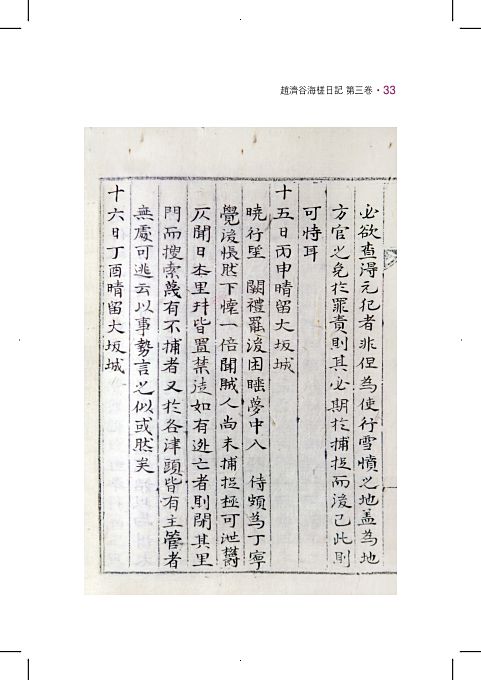 趙濟谷海槎日記 第三卷 · 33
必欲査得元犯者非但爲使行雪憤之地盖爲地
方官之免於罪責則其必期於捕捉而後已此則
可恃耳
十五日丙申晴留大坂城
曉行望 闕禮罷後困睡夢中入 侍頗爲丁寧
覺後悵然下懷一倍聞賊人尚未捕捉極可泄欝
仄聞日本里井皆置禁徒如有逃亡者則閉其里
門而搜索蔑有不捕者又於各津頭皆有主管者
無處可逃云以事勢言之似或然矣
十六日丁酉晴留大坂城